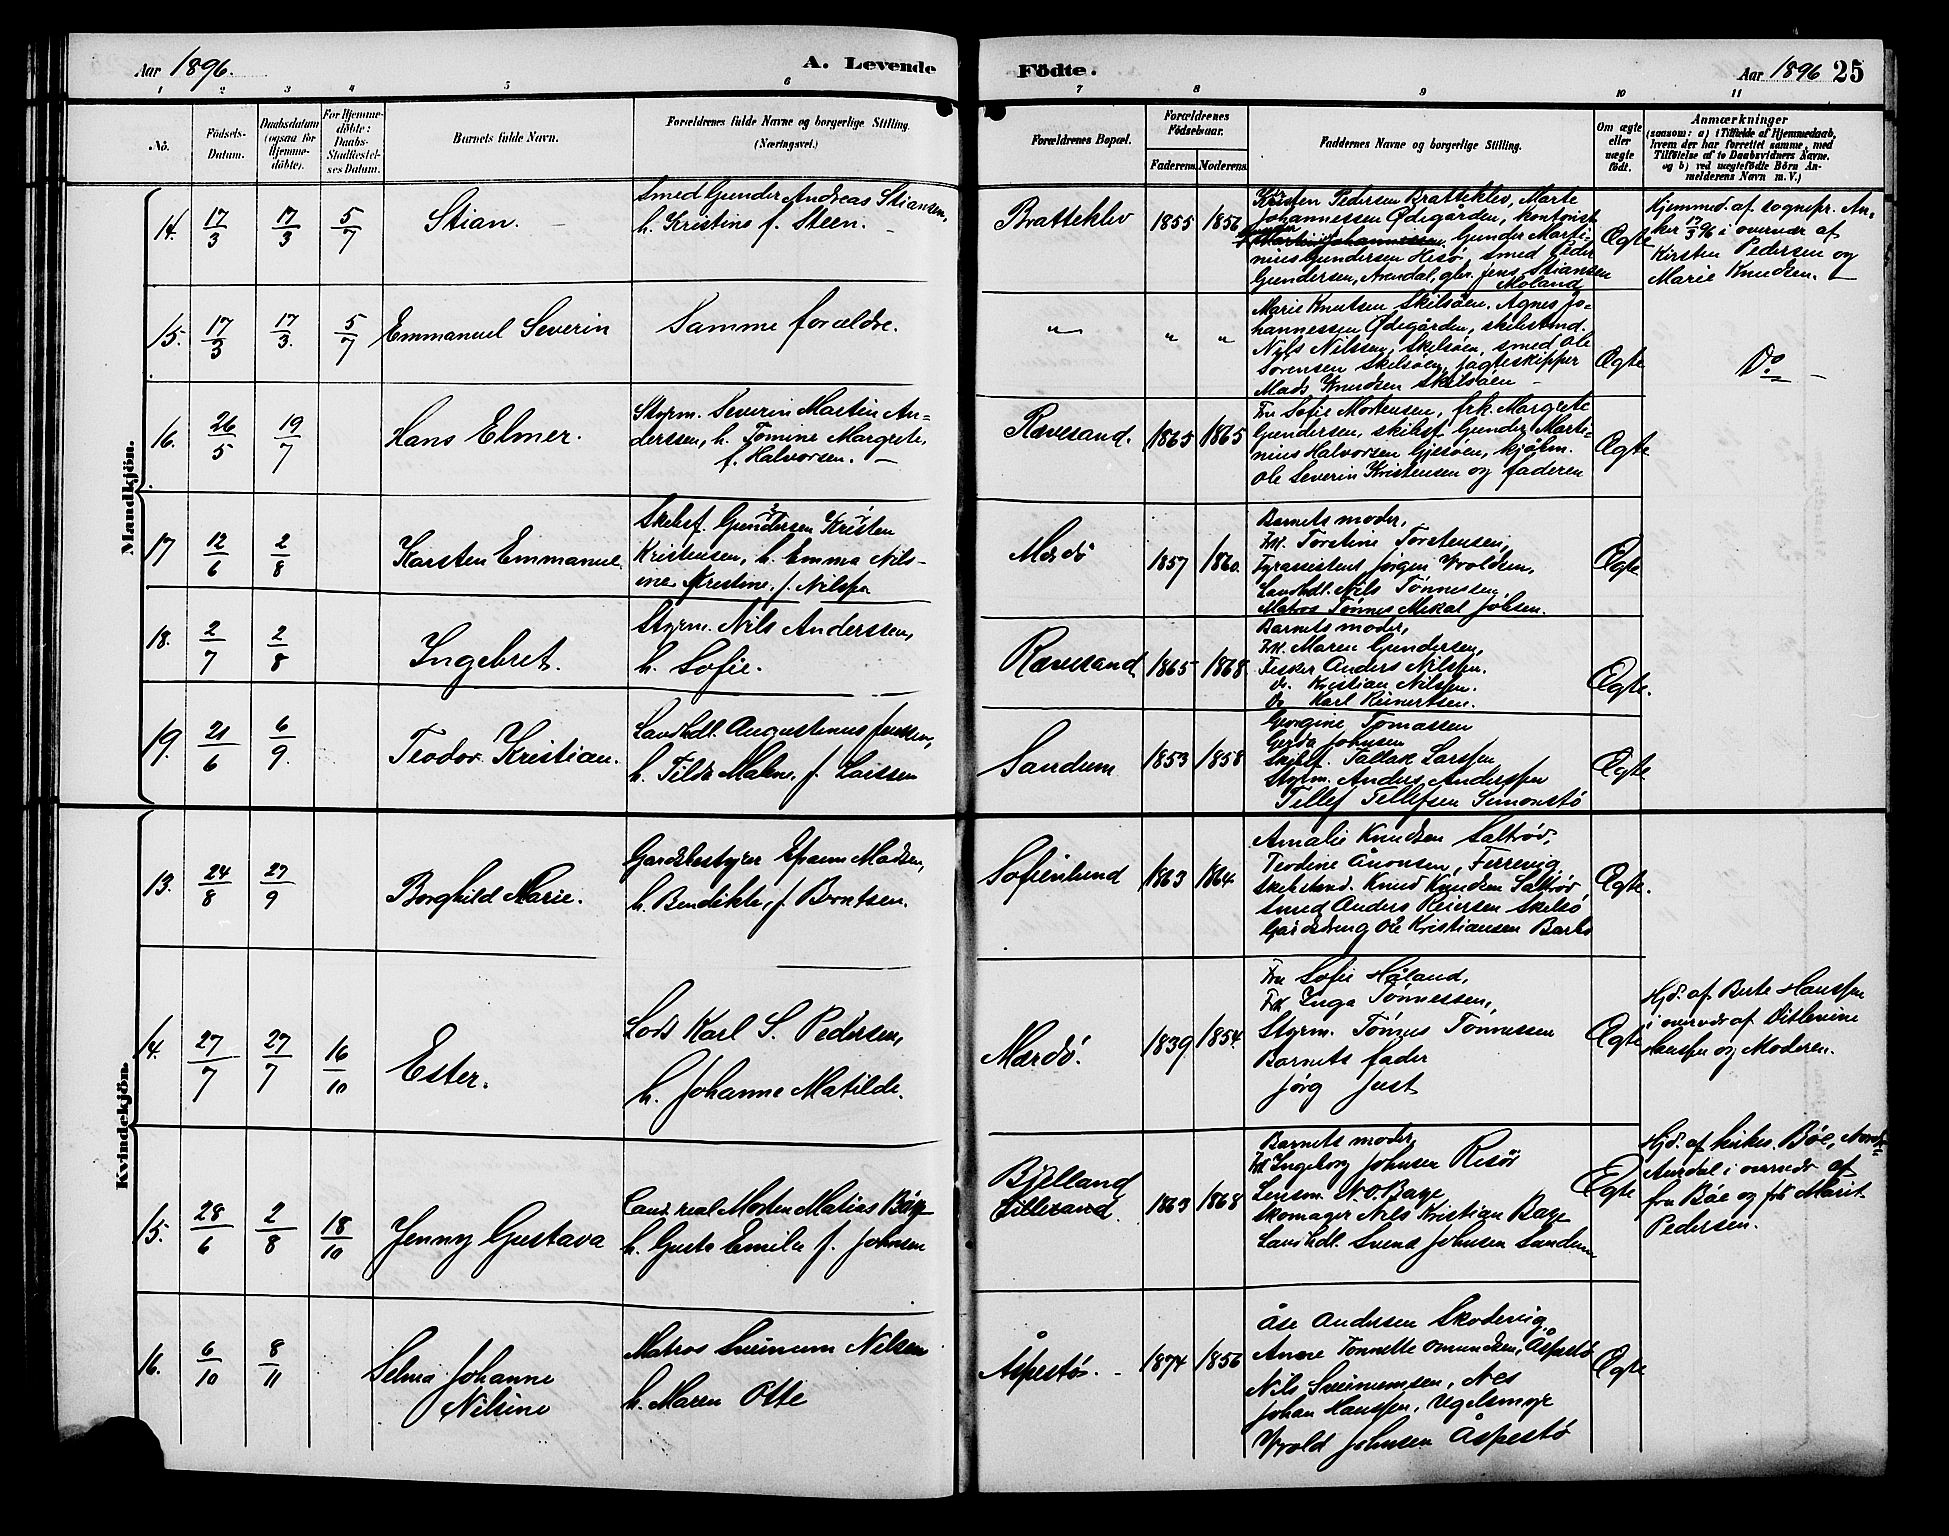 Aar 1896.
A. Levende
Födte.
Aar 1896
25
1 2 3 4 5 6
7 8 9 10 11
No.
Födsels-
Datum.
Daabsdatum
(ogsaa for
Hjemme-
döbte).
For Hjemme-
döbte:
Daabs-
Stadfæstel-
ses Datum.
Barnets fulde Navn.
Forældrenes fulde Navne og borgerlige Stilling.
(Næringsvei.)
Forældrenes Bopæl.
Forældrenes
Födselsaar.
Faderens. Moderens.
Faddernes Navne og borgerlige Stilling.
Om ægte
eller
uægte
födt.
Anmærkninger
(saasom: a) i Tilfælde af Hjemmedaab,
hvem der har forrettet samme, med
Tilföielse af to Daabsvidners Navne,
og b) ved uægtefödte Börn An-
melderens Navn m. V.)
Mandkjön.
14. 17/3 17/3 5/7
Stian.
Smed Gunder Andreas Stiansen,
h. Kristine f. Steen.
Bratteklev
1855 1856
Kirsten Pedersen Bratteklev, Marte
Johannessen Ødegården, kontorist
Gunder Marti-
nius Gundersen Hisø, smed Peder
Gundersen, Arendal, gbr. Jens Stiansen
Moland
Ægte
Hjemmed. af sognepr. An-
ker 17/3 96 i overvær af
Kirsten Pedersen og
Marie Knudsen.
15. 17/3 17/3. 5/7
Emmanuel Severin
Samme forældre.
" " "
Marie Knutsen Skilsøen. Agnes Jo-
hannessen Ødegården, skibstmd.
Nils Nilssen, Skilsøen, smed Ole
Sørensen Skilsøen, jagteskipper
Mads Knudsen Skilsøen
Ægte
Do
16. 26/5 19/7
Hans Elmer.
Styrm. Severin Martin An-
derssen, h. Tomine Margrete,
f. Halvorsen.
Rævesand.
1865 1865
Fru Sofie Mortensen, frk. Margrete
Gundersen, skibsf. Gunder Marti-
nius Halvorsen Gjesøen, kjøbm.
Ole Severin Kristensen og faderen
Ægte
17 12/6 2/8
Karsten Emmanuel
Skibsf. Gundersen Kristen
Kristensen, h. Emma Nils-
ine Kristine f. Nilssen
Mærdø
1857 1860.
Barnets moder,
Frk. Torstine Torstensen,
Fyrassistent Jørgen Wroldsen,
Landhdl. Nils Tønnessen
Matros Tønnes Mikal Jobsen.
Ægte
18. 2/7 2/8
Ingebret.
Styrm. Nils Anderssen,
h. Sofie.
Rævesand
1865 1868
Barnets moder,
Frk. Maren Gundersen,
Fisker Anders Nilssen.
Do. Kristian Nilssen.
Do Karl Reinertsen.
Ægte.
19. 21/6 6/9.
Teodor Kristian.
Landhdl. Augustinus Jenssen,
h. Tilda Malene, f. Larssen
Sandum
1853 1858
Georgine Tomassen
Gerda Johnsen
Skibsf. Tallak Larssen
Styrm. Anders Anderssen
Tellef Tellefsen Simonstø
Ægte
Kvindekjön.
13. 24/8 27/9
Borghild Marie.
Gardsbestyrer Efraim Madsen,
h. Bendikte, f. Berntsen.
Sofienlund
1863 1864
Amalie Knudsen Saltrød,
Teodine Aanonsen, Ferrevig
Skibstmd. Knud Knudsen Saltrød
Smed Anders Reiersen Skilsø
Gardsdreng Ole Kristiansen Barbo
Ægte.
14. 27/7 27/7 16/10
Ester.
Lods Karl S. Pedersen,
h. Johanne Matilde.
Mærdø.
1839 1854.
Fru Sofie Håland,
Frk Inga Tønnessen,
Styrm. Tønnes Tønnessen
Barnets fader
Jørg Just
Ægte
Hjd. af Berte Hanssen
i overvær af Ditlevine
Hanssen og Moderen.
15. 28/6 2/8 18/10
Jenny Gustava
Cand. real Morten Matias Bøge
h. Gusta Emilie f. Johnsen
Bjelland
Lillesand.
1863 1868
Barnets moder,
Frk Ingeborg Johnsen Risør
Lensm. N. O. Bage
Skomager Nils Kristian Bage
Landhdl. Svend Johnsen Sandum
Ægte
Hjd. af kirkes. Bøe, Nordre
Aurdal i overvær af
fru Bøe og frk Marit
Pedersen.
16. 6/10 8/11
Selma Johanne
Nilsine
Matros Nilsen
h. Maren Otte
Åspestø.
1874 1856
Åse Andersen Skodevig,
Anne Tonnette Omundsen, Åspestø
Nils , Nes
Johan Hanssen, Vegelsmyr
Wrold Johnsen Åspestø
Ægte